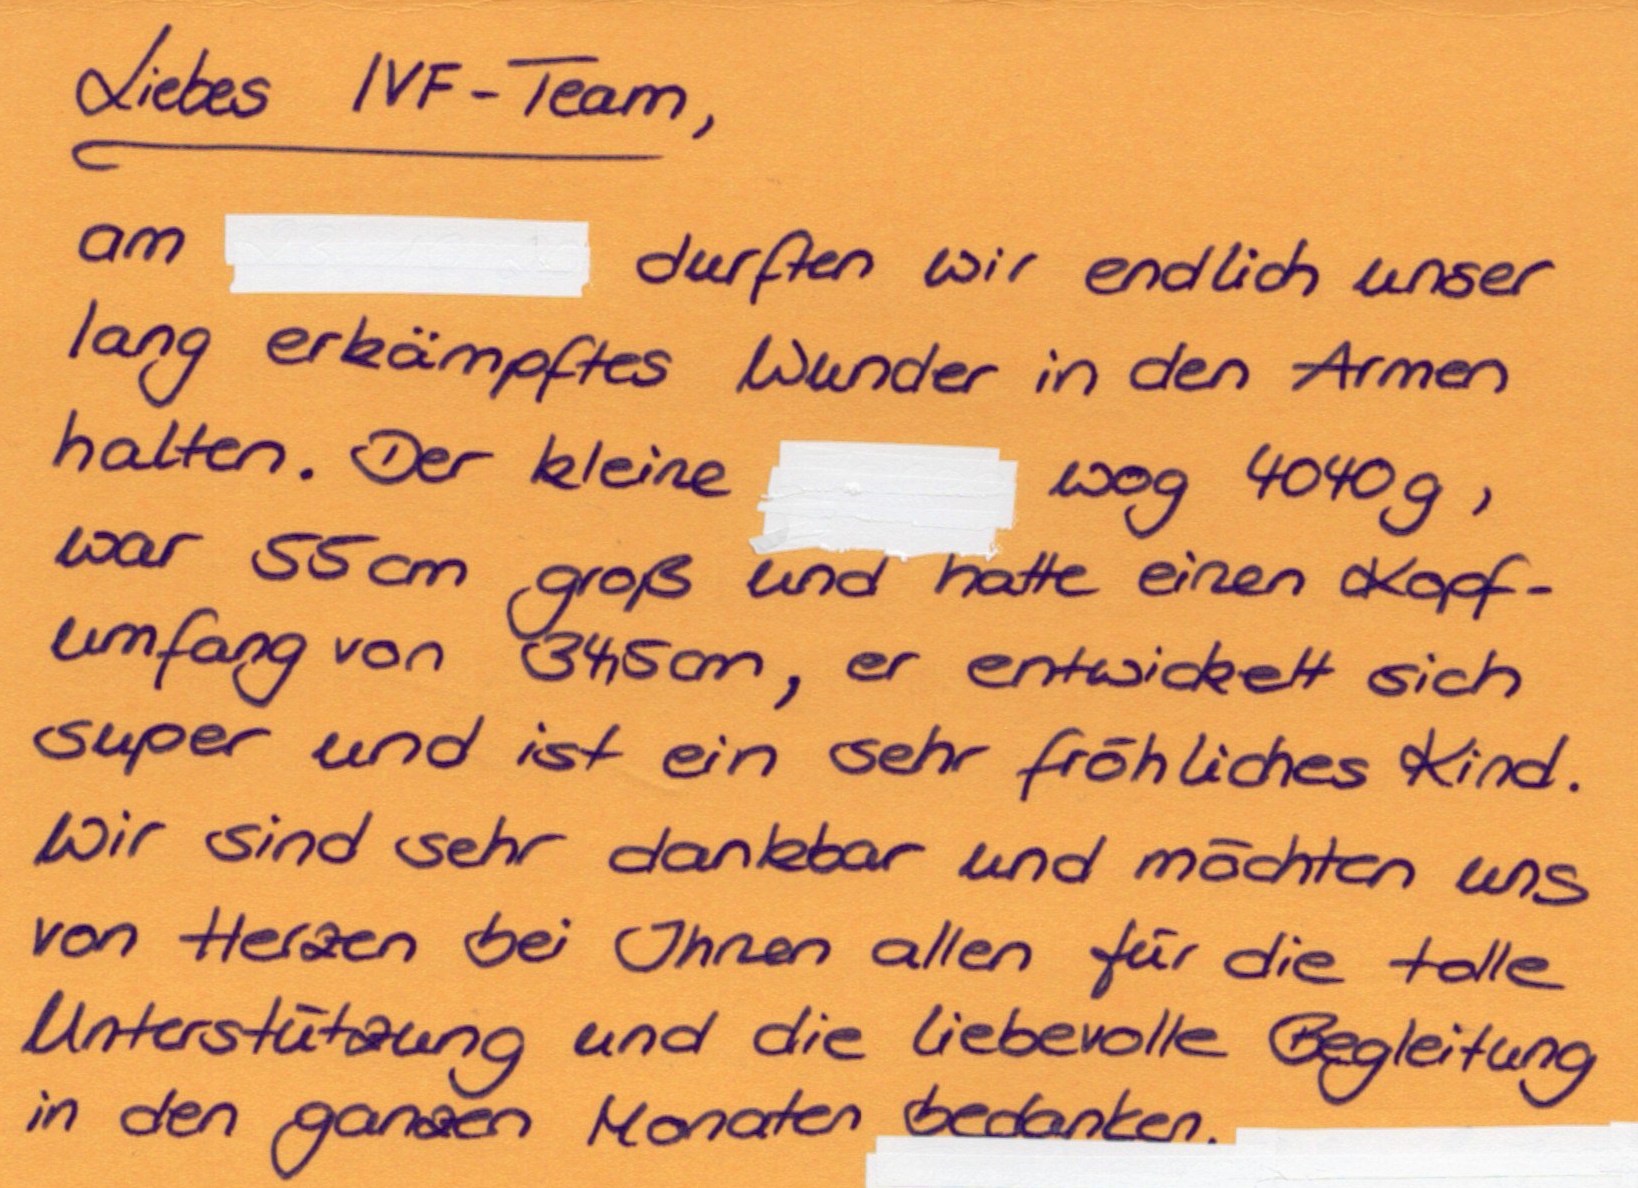 Liebes IVF-Team,
am durften wir endlich unser
lang erkämpftes Wunder in den Armen
halten. Der kleine wog 4040g,
war 55cm groß und hatte einen Kopf-
umfang von 34,5cm, er entwickelt sich
super und ist ein sehr fröhliches Kind.
Wir sind sehr dankbar und möchten uns
von Herzen bei Ihnen allen für die tolle
Unterstützung und die liebevolle Begleitung
in den ganzen Monaten bedanken.